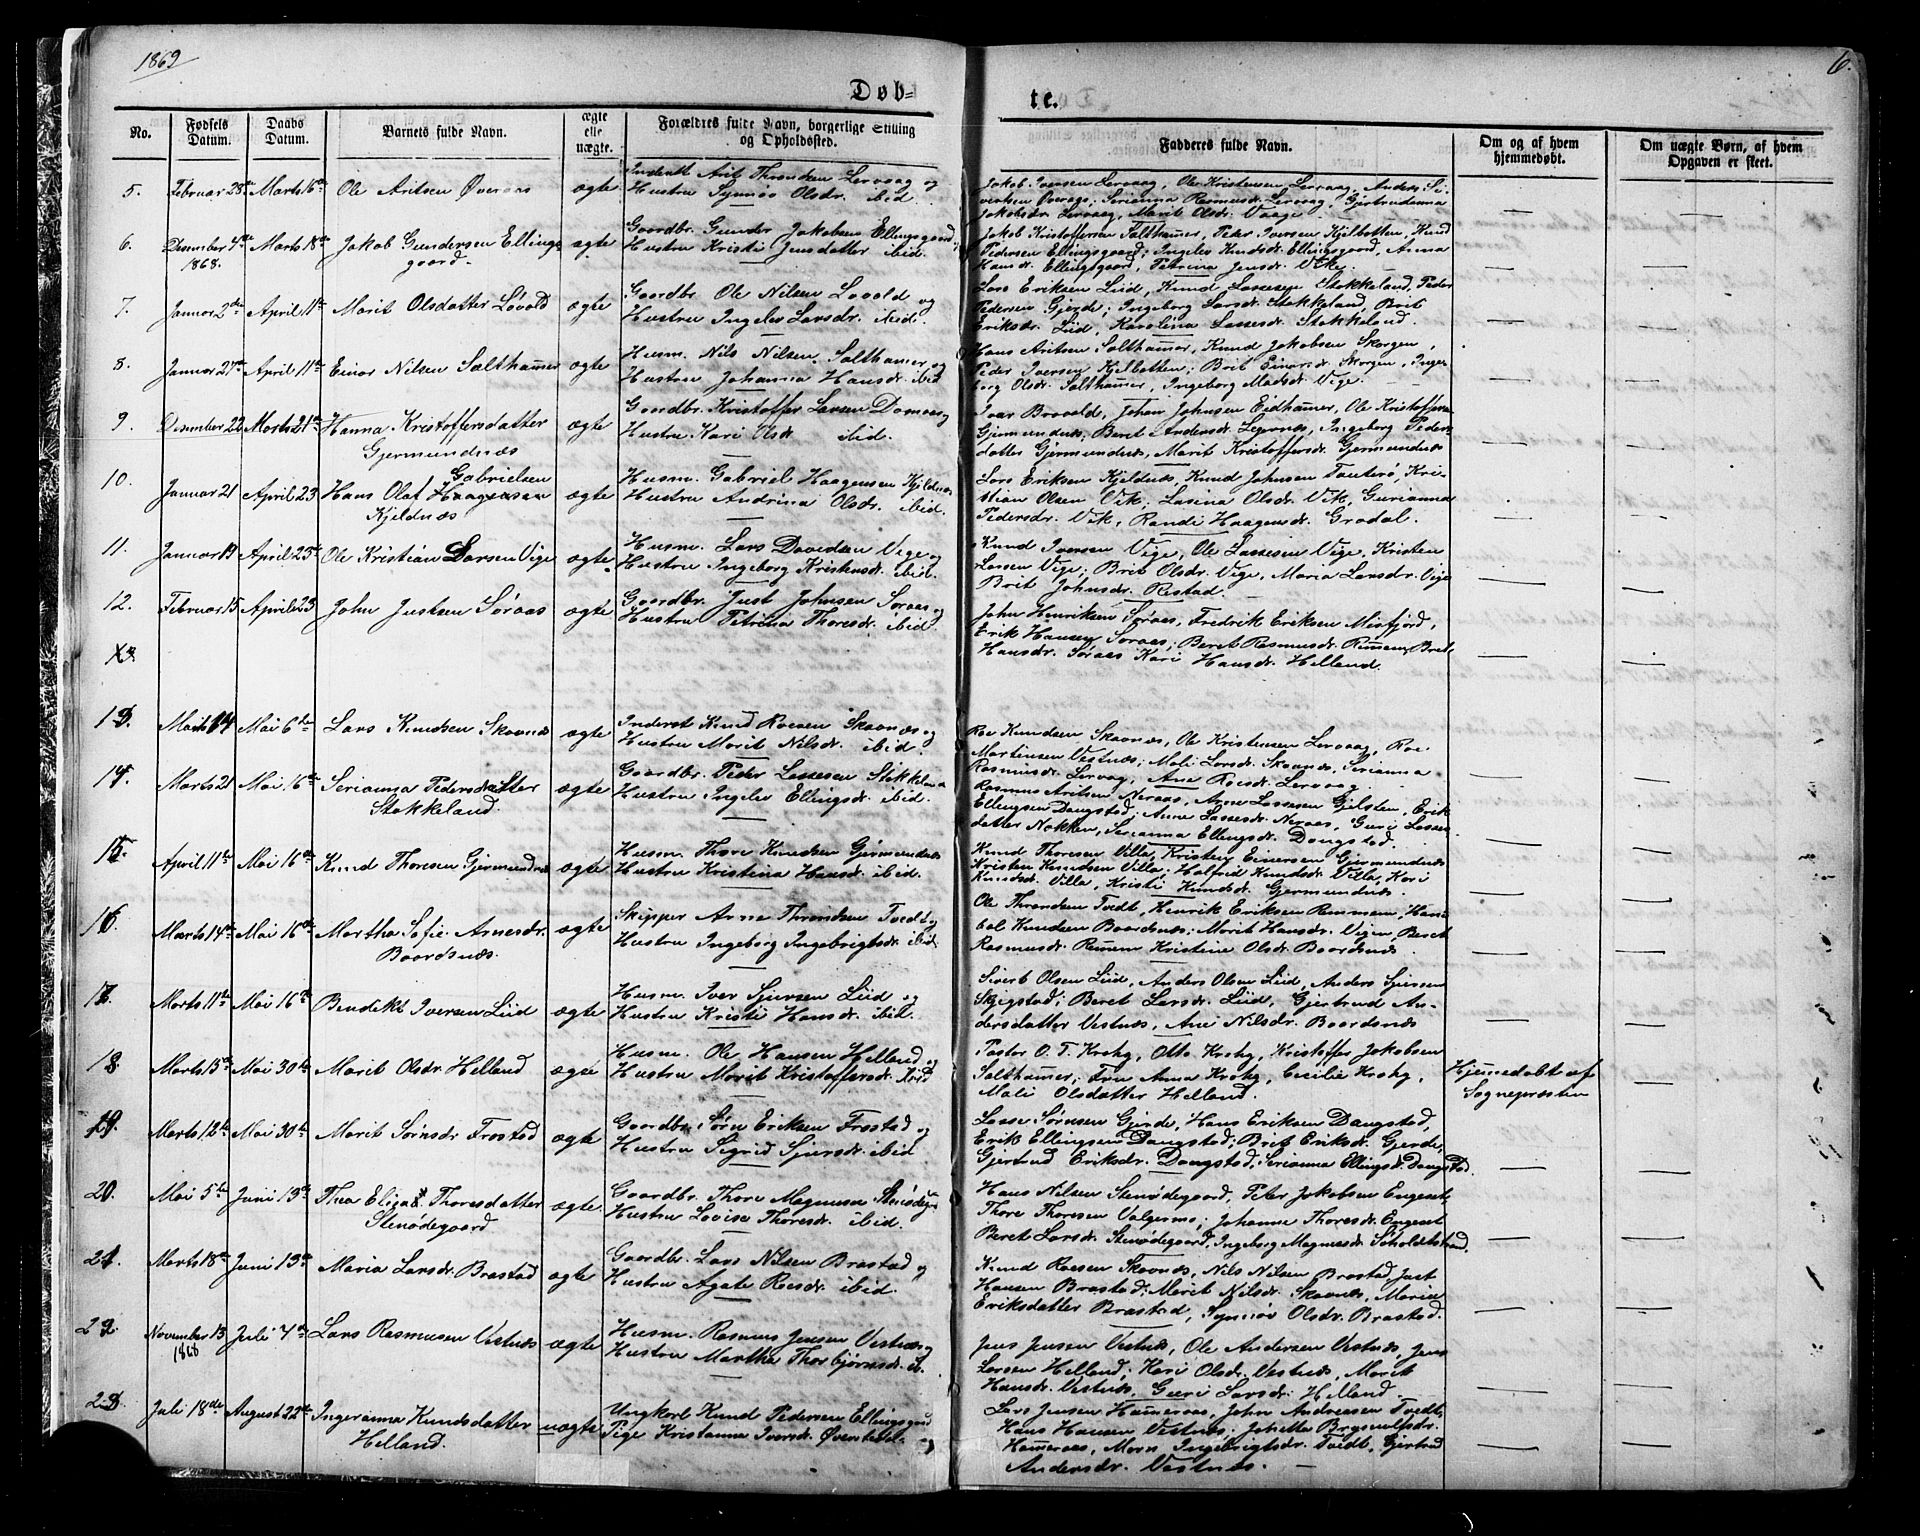 1869
6.
Døb-
te.
No.
Fødsels Datum.
Daabs Datum.
Barnets fulde Navn.
ægte elle uægte.
Forældres fulde Navn, borgerlige Stilling og Opholdssted.
Fadderes fulde Navn.
Om og af hvem hjemmedøbt.
Om uægte Børn, af hvem Opgaven er skeet.
5. Februar 28de Marts 16de Ole Aritsen Øveraas ægte Inderst Arit Throndsen Lervaag og
Hustru Synnøv Olsdr. ibid
Jakob Iversen Lervaag, Ole Kristensen Lervaag, Anders Si-
vertsen Øveraas; Serianna Rasmusdr. Lervaag, Gjertrudanna
Jakobsdr. Lervaag, Marit Olsdr. Vaage.
6. Desember 4de 1868. Marts 18de Jakob Gundersen Ellings-
gaard. ægte Gaardbr. Gunder Jakobsen Ellingsgaard,
Hustru Kristi Jensdatter ibid.
Jakob Kristoffersen Salthammer, Peter Iversen Kjelbotten, Knud
Pedersen Ellingsgaard; Ingelev Knudsdr. Ellingsgaard, Anna
Hansdr. Ellingsgaard, Petrina Jensdr. Vike.
7. Januar 2den April 11te Marit Olsdatter Løvold ægte Gaardbr. Ole Nilsen Lovold og
Hustru Ingelev Larsdr. ibid.
Lars Eriksen Liid, Knud Lassesen Stokkeland, Peder
Pedersen Gjerde; Ingeborg Larsdr. Stokkeland, Brit
Eriksdr. Liid, Karolina Lassesdr. Stokkeland.
8. Januar 27de April 11te Einar Nilsen Salthammer ægte Husm. Nils Nilsen Salthamer og
Hustru Johanna Hansdr. ibid
Hans Aritsen Salthammer, Knud Jakobsen Skorgen,
Peder Iversen Kjelbotten; Brit Einarsdr. Skorgen, Inge-
borg Olsdr. Salthammer, Ingeborg Madsdr. Vige.
9. Desember 22 Marts 21de Hanna Kristoffersdatter
Gjermundnæs ægte Gaardbr. Kristoffer Larsen
Hustru Kari Olsdr. ibid.
Ivar Brovold, Johan Johnsen Eidhammer, Ole Kristoffersen
Gjermundnæs; Beret Andersdr. Legernæs, Ingeborg Peders-
datter Gjermundnæs, Marit Kristoffersdr. Gjermundnæs
10. Januar 21 April 23 Hans Olaf Gabrielsen
Kjeldnæs ægte Husm. Gabriel Haagensen Kjeldnæs
Hustru Andrina Olsdr. ibid.
Lars Eriksen Kjeldnæs, Knud Johnsen Tauterø, Kri-
stian Olsen Vik; Lasina Olsdr. Vik, Gurianna
Pedersdr. Vik, Randi Haagensdr. Grødal.
11. Januar 19 April 25de Ole Kristian Larsen Vige ægte Husm. Lars Davidsen Vege og
Hustru Ingeborg Kristensdr. ibid.
Knud Iversen Vige, Ole Lassesen Vige, Kristen
Larsen Vige; Brit Olsdr. Vige, Maria Larsdr. Vige
Brit Johnsdr. Restad.
12. Februar 15 April 23 John Justsen Søraas ægte Gaardbr. Just Johnsen Søraas og
Hustru Petrina Thoresdr. ibid.
John Henriksen Søraas, Fredrik Eriksen Misfjord,
Erik Hansen Søraas; Beret Rasmusdr. Remmem, Brit
Hansdr. Søraas Kari Hansdr. Helland.
13. Marts 14 Mai 6te Lars Knudsen Skavnæs ægte Inderst Knud Roesen Skavnæs og
Hustru Marit Nilsdr. ibid
Roe Knudsen Skavnæs, Ole Kristensen Lervaag, Roe
Martinsen Vestnæs; Mali Larsdr. Skavnæs, Serianna
Rasmusdr. Lervag, Ane Roesdr. Lervaag
14. Marts 21 Mai 16de Serianna Pedersdatter
Stokkeland ægte Gaardbr. Peder Lassesen Stokkeland
Hustru Ingelev Ellingsdr. ibid.
Rasmus Aritsen Neraas, Arne Lassesen Gjelsten, Erik
Ellingsen Daugstad; Anne Lassesdr. Neraas, Guri Lasses-
datter Nakken, Serianna Ellingsdr. Daugstad.
15. April 11te Mai 16de Knud Thoresen Gjermundnæs ægte Husm. Thore Knudsen Gjermundnæs
Hustru Kristina Hansdr. ibid.
Knud Thoresen Villa, Kristen Einersen Gjermundnæs
Kristen Knudsen Villa; Halfrid Knudsdr. Villa, Kari
Knudsdr. Villa, Kristi Knudsdr. Gjermundnæs
16. Marts 14de Mai 16de Martha Sofie Arnesdr.
Baardsnæs. ægte Skipper Arne Throndsen Tvedt og
Hustru Ingeborg Ingebrigtsdr. ibid.
Ole Throndsen Tvedt, Henrik Eriksen Remmem, Han-
bal Knudsen Baardsnæs; Marit Hansdr. Vigen, Beret
Rasmusdr. Remem Kristine Olsdr. Baardsnæs
17. Marts 11te Mai 16de Bendikt Iversen Liid ægte Husm. Iver Sjursen Liid og
Hustru Kristi Hansdr. ibid.
Sivert Olsen Liid, Anders Olsen Liid, Anders Sjursen
Skjegstad; Beret Larsdr. Liid, Gjertrud An-
dersdatter Vestnæs, Ane Nilsdr. Baardsnæs
18. Marts 15de Mai 30te Marit Olsdr. Helland ægte Husm. Ole Hansen Helland og
Hustru Marit Kristoffersdr. ibid
Pastor O. T. Krohg, Otto Krohg, Kristoffer Jakobsen
Salthammer; Fru Anna Krohg, Cecilie Krohg,
Mali Olsdatter Helland.
Hjemmedøbt af
Sognepræsten
19. Marts 12te Mai 30te Marit Sørnsdr. Frostad ægte Gaardbr. Sørn Eriksen Frostad og
Hustru Sigrid Sjursdr. ibid
Lasse Sørnsen Gjerde, Hans Eriksen Daugstad,
Erik Ellingsen Daugstad; Brit Eriksdr. Gjerde,
Gjertrud Eriksdr. Daugstad, Serianna Ellingsdr. Daugstad.
20. Mai 5te Juni 13de Thea Elizat Thoresdatter
Stenødegaard ægte Gaardbr. Thore Magnusen Stenødegrd
Hustru Lovise Thoresdr. ibid.
Hans Nilsen Stenødegaard, Peter Jakobsen Engeset,
Thore Thoresen Valgermo; Johanna Thoresdr. Engeset
Beret Larsdr. Stenødegaard, Ingeborg Magnusdr. Søholdtstrand.
21. Marts 18de Juni 13de Maria Larsdr. Brastad ægte Gaardbr. Lars Nilsen Brastad og
Hustru Agate Roesdr. ibid.
Knud Roesen Skavnæs, Nils Nilsen Brastad, Just
Hansen Brastad; Marit Nilsdr. Skavnæs, Maria
Eriksdatter Brastad, Synnøv Olsdr. Brastad.
22. November 13 1868 Juli 4de Lars Rasmusen Vestnæs ægte Husm. Rasmus Jensen Vestnæs og
Hustru Martha Thorbjørnsdr. ib.
Jens Jensen Vestnæs, Ole Andersen Vestnæs, Jens
Larsen Helland; Kari Olsdr. Vestnæs, Marit
Hansdr. Vestnæs, Guri Larsdr. Helland.
23. Juli 18de August 22de Ingeranna Knudsdatter
Helland. uægte Ungkarl Knud Pedersen Ellingsgrd
Pige Kristanna Iversdr. Øverstebel
Lars Jensen Hameraas, John Andreasen Tvedt,
Hans Hansen Vestnæs; Johetta Brynulfsdr.
Hameraas, Marn Ingebrigtsdr. Tvedt, Gjertrud
Andersdr. Vestnæs.